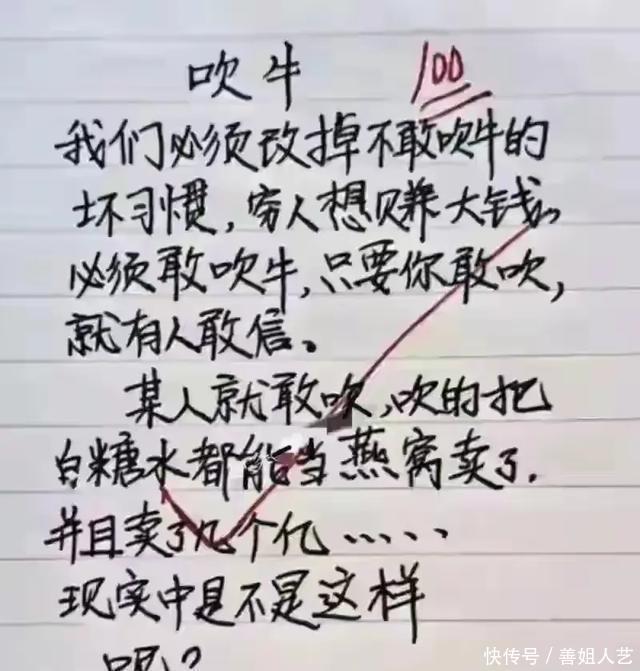 吹牛 100
我们必须改掉不敢吹牛的
坏习惯,穷人想赚大钱。
必须敢吹牛,只要你敢吹,
就有人敢信。
某人就敢吹,吹的把
白糖水都能当燕窝卖了.
并且卖了几个亿……
现实中是不是这样
呢?
快传号/善姐人艺